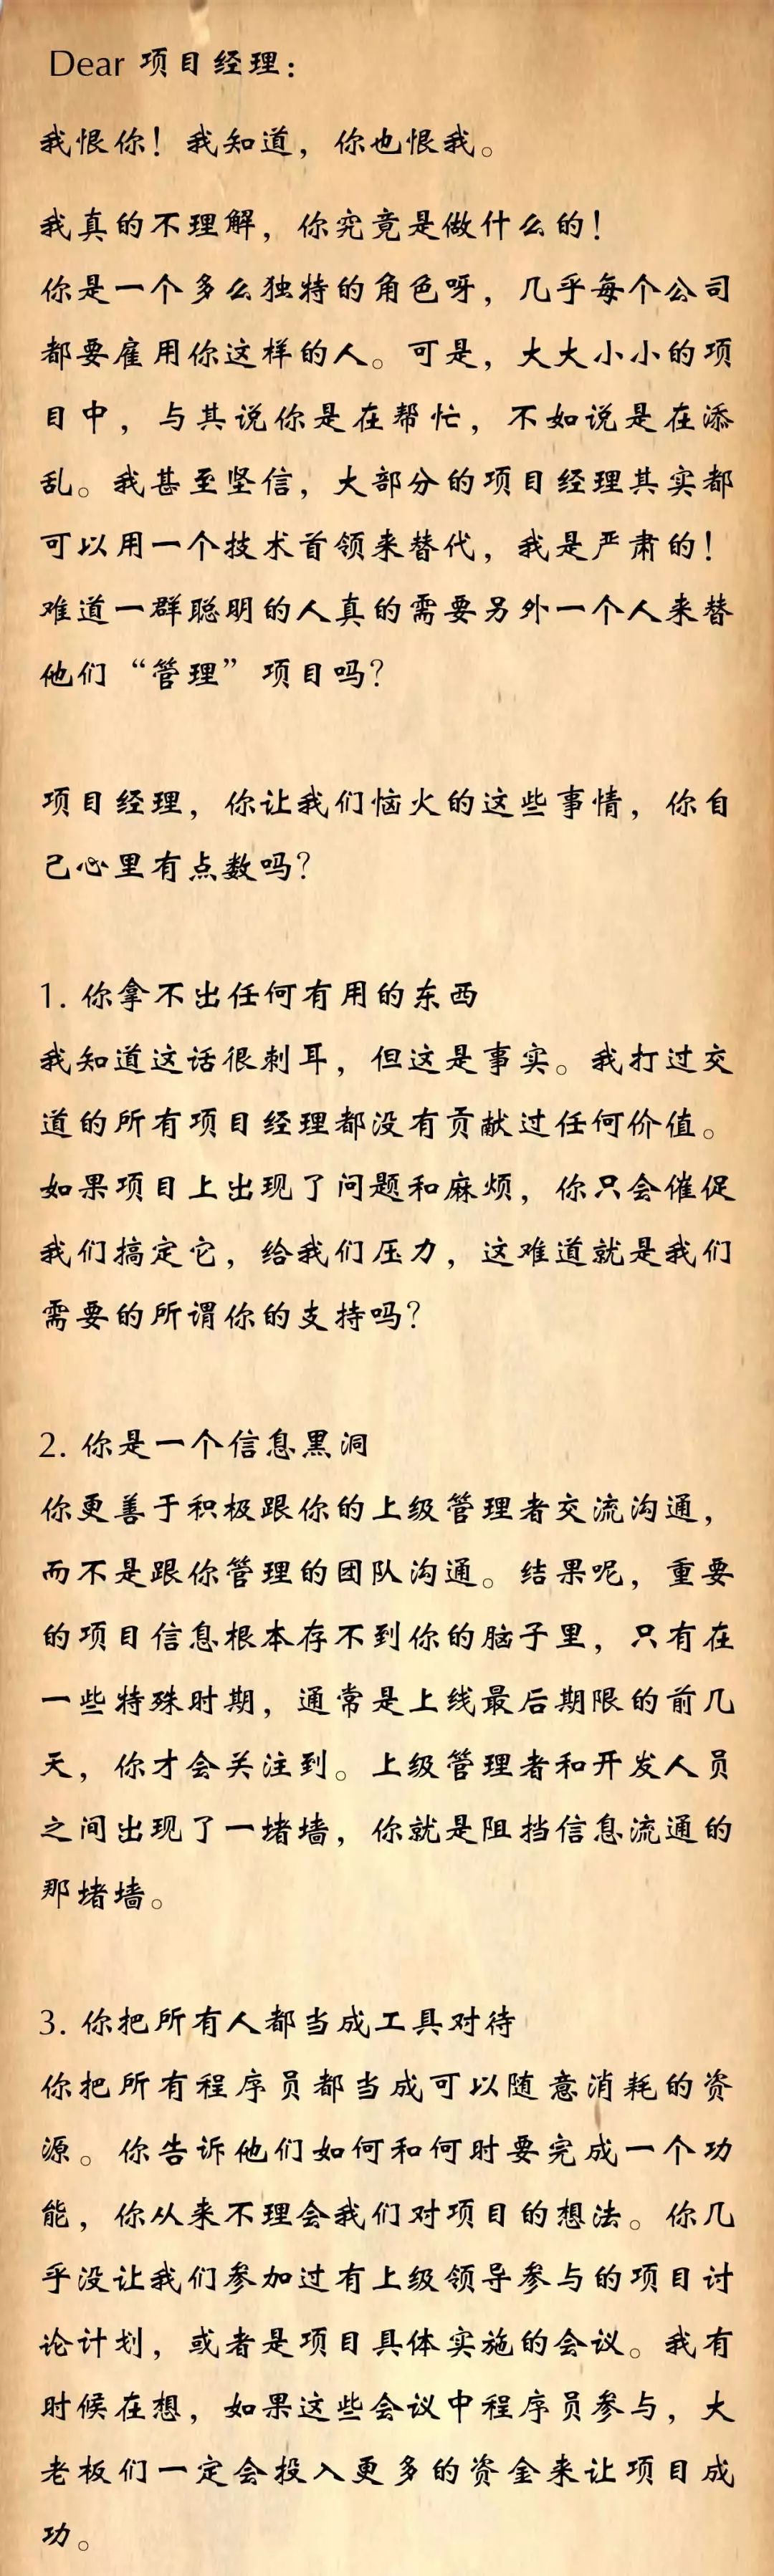 Dear 项目经理：
我恨你！我知道，你也恨我。
我真的不理解，你究竟是做什么的！
你是一个多么独特的角色呀，几乎每个公司
都要雇用你这样的人。可是，大大小小的项
目中，与其说你是在帮忙，不如说是在添
乱。我甚至坚信，大部分的项目经理其实都
可以用一个技术首领来替代，我是严肃的！
难道一群聪明的人真的需要另外一个人来替
他们“管理”项目吗？
项目经理，你让我们恼火的这些事情，你自
己心里有点数吗？
1. 你拿不出任何有用的东西
我知道这话很刺耳，但这是事实。我打过交
道的所有项目经理都没有贡献过任何价值。
如果项目上出现了问题和麻烦，你只会催促
我们搞定它，给我们压力，这难道就是我们
需要的所谓你的支持吗？
2. 你是一个信息黑洞
你更善于积极跟你的上级管理者交流沟通，
而不是跟你管理的团队沟通。结果呢，重要
的项目信息根本存不到你的脑子里，只有在
一些特殊时期，通常是上线最后期限的前几
天，你才会关注到。上级管理者和开发人员
之间出现了一堵墙，你就是阻挡信息流通的
那堵墙。
3. 你把所有人都当成工具对待
你把所有程序员都当成可以随意消耗的资
源。你告诉他们如何和何时要完成一个功
能，你从来不理会我们对项目的想法。你几
乎没让我们参加过有上级领导参与的项目讨
论计划，或者是项目具体实施的会议。我有
时候在想，如果这些会议中程序员参与，大
老板们一定会投入更多的资金来让项目成
功。